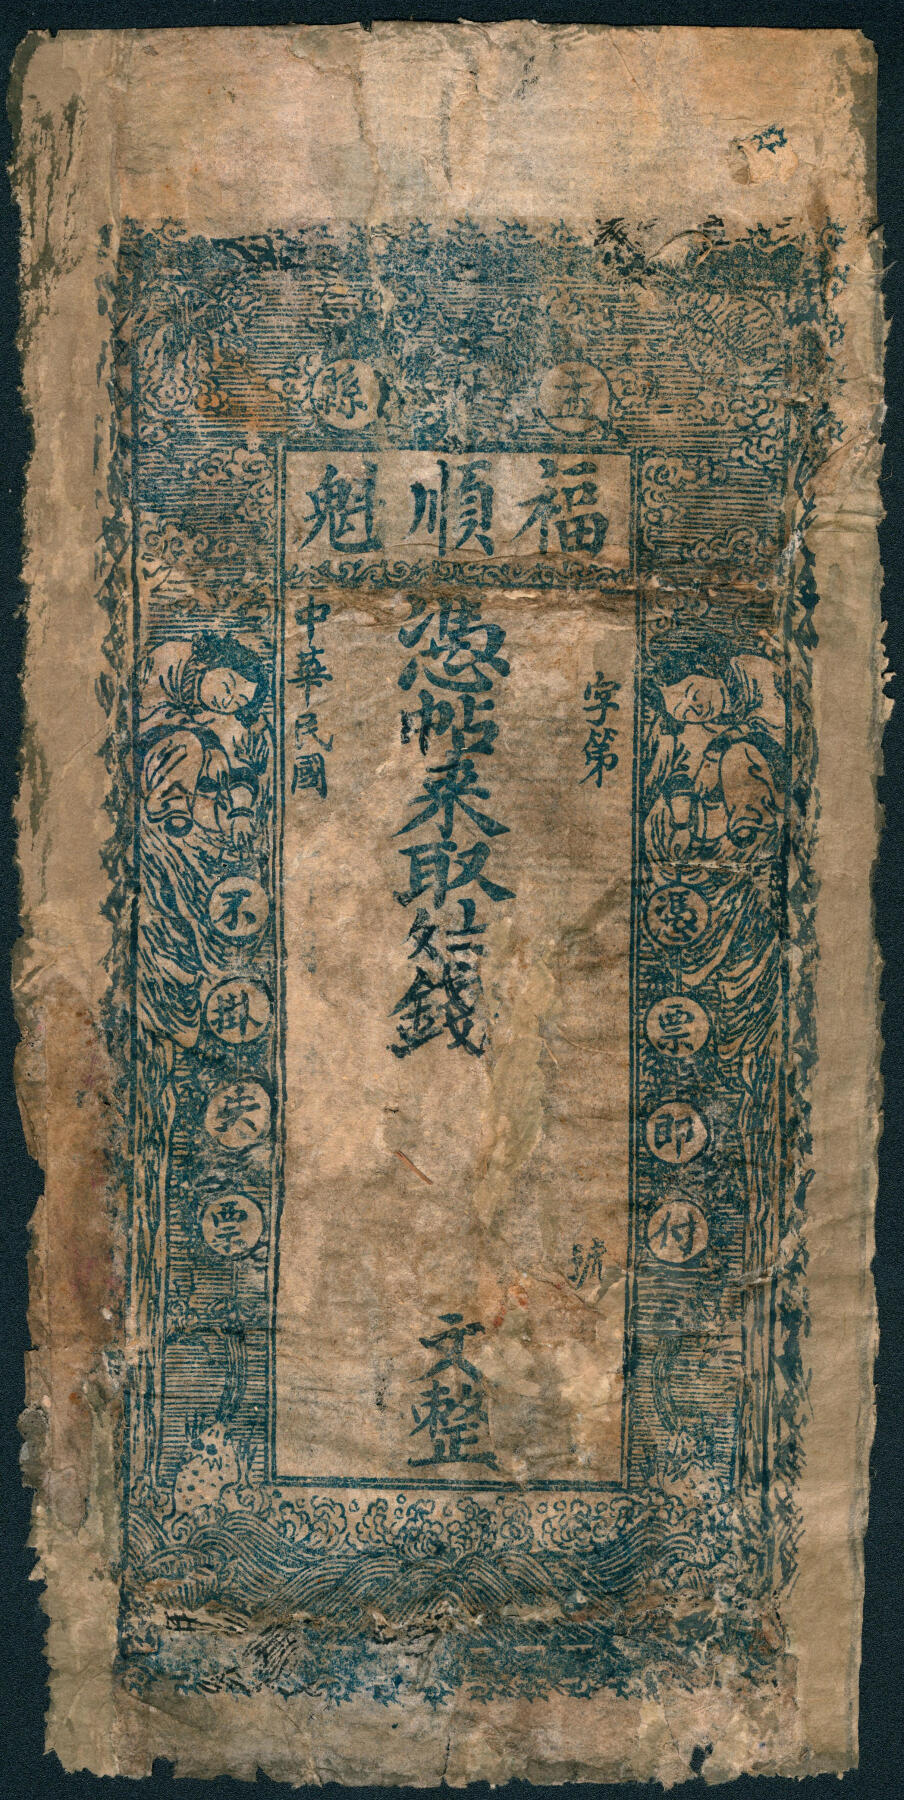 盂縣
福順魁
字第
號
憑帖來取
錢
文整
中華民國
憑票即付
不掛失票